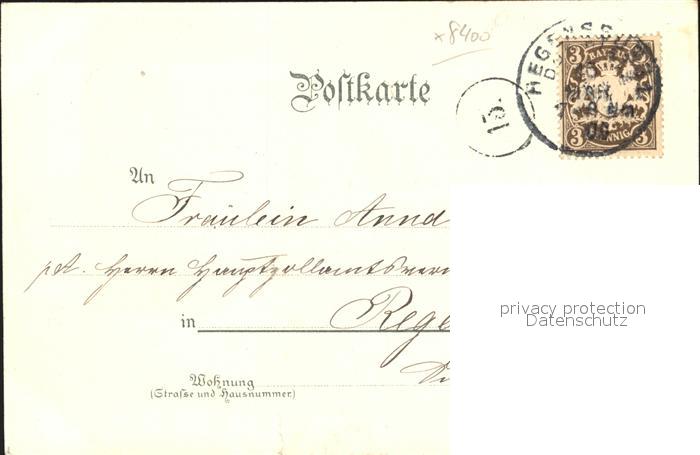 ×8400
Postkarte
15.
REGENSBURG
BAYERN
3 3
3 PFENNIG 3
An
Fräulein Anna
Herrn Hauptzollamtsverw
in Rege
Wohnung
(Straße und Hausnummer)
privacy protection
Datenschutz